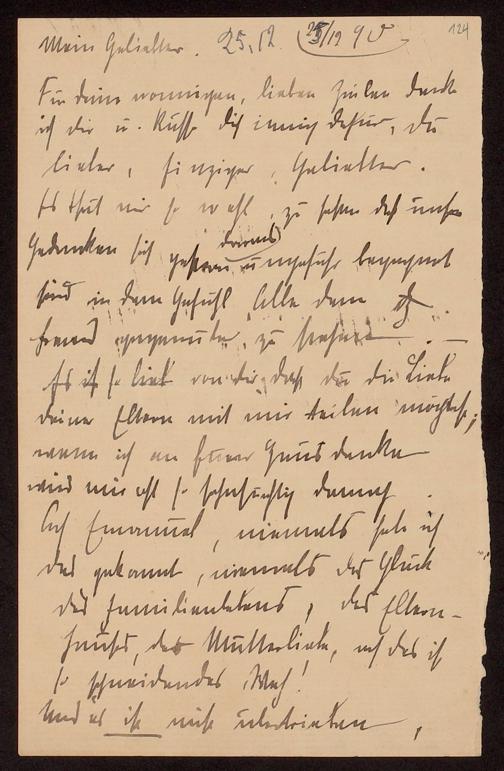 124
Mein Geliebter. 25.12. 25/12 90
Für deine wonnigen, lieben Zeilen danke
ich dir u. küsse dich innig dafür, du
lieber, einziger, Geliebter.
Es thut mir so wohl, zu sehen daß unsre
Gedanken sich gestern abends ungefähr begegnet
sind in dem Gefühl Alle dem
fremd gegenüber zu stehen. —
Es ist so lieb von dir, daß du die Liebe
deiner Eltern mit mir teilen möchtest;
wenn ich an Euer Haus denke
wird mir oft so sehnsüchtig darnach.
Ach Emanuel, niemals habe ich
das gekannt, niemals das Glück
des Familienlebens, des Eltern-
hauses, der Mutterliebe, ach das ist
so schneidendes Weh!
Und es ist nicht übertrieben,